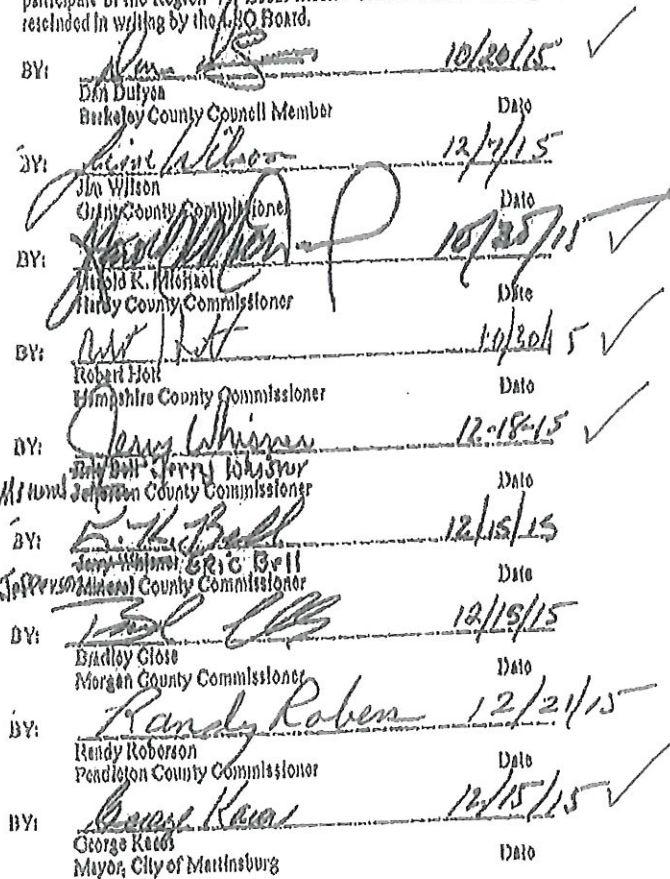 participate in the Region
rescinded in writing by the LEO Board.
BY: 10/20/15 ✓
Dan Dulyea Date
Berkeley County Council Member
BY: Jim Wilson 12/7/15
Jim Wilson Date
Grant County Commissioner
BY: 10/20/15 ✓
Harold K. Michael Date
Hardy County Commissioner
BY: 10/20/15 ✓
Robert Hott Date
Hampshire County Commissioner
BY: Jerry Whisner 12-18-15 ✓
Eric Bell Jerry Whisner Date
Mineral Jefferson County Commissioner
BY: E. K. Bell 12/15/15
Jerry Whisner ERIC Bell Date
Jefferson Mineral County Commissioner
BY: 12/15/15
Bradley Close Date
Morgan County Commissioner
BY: Randy Roberson 12/21/15
Randy Roberson Date
Pendleton County Commissioner
BY: George Karos 12/15/15 ✓
George Karos Date
Mayor, City of Martinsburg